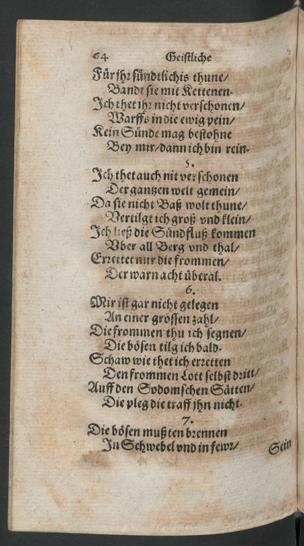 64 Geistliche
Für jhr sündtlichis thune/
Bandt sie mit Kettenen.
Ich thet ihr nicht verschonen/
Warffs in die ewig pein/
Kein Sünde mag bestohne
Bey mir/ dann ich bin rein.
5.
Ich thet auch nit verschonen
Der gantzen welt gemein/
Da sie nicht Baß wolt thune/
Vertilgt ich groß vnd klein/
Ich ließ die Sündfluß kommen
Vber all Berg vnd thal/
Errettet nur die frommen/
Der warn acht überal.
6.
Mir ist gar nicht gelegen
An einer grossen zahl/
Die frommen thu ich segnen/
Die bösen tilg ich bald.
Schaw wie thet ich erretten
Den frommen Lott selbst dritt/
Auff den Sodomschen Stätten/
Die pleg die traff jhn nicht.
7.
Die bösen mußten brennen
In Schwebel vnd in fewr/
Sein